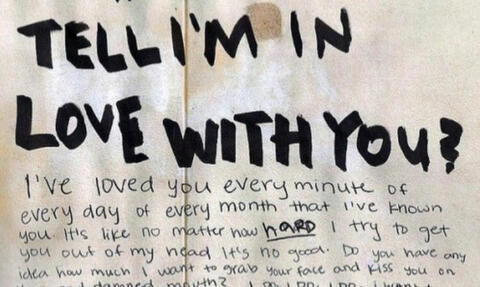 TELL I'M IN
LOVE WITH YOU?
I've loved you every minute of
every day of every month that I've known
you. It's like no matter how HARD I try to get
you out of my head It's no good. Do you have any
idea how much I want to grab your face and kiss you on
damned mouth? I do, I do, I do. I want